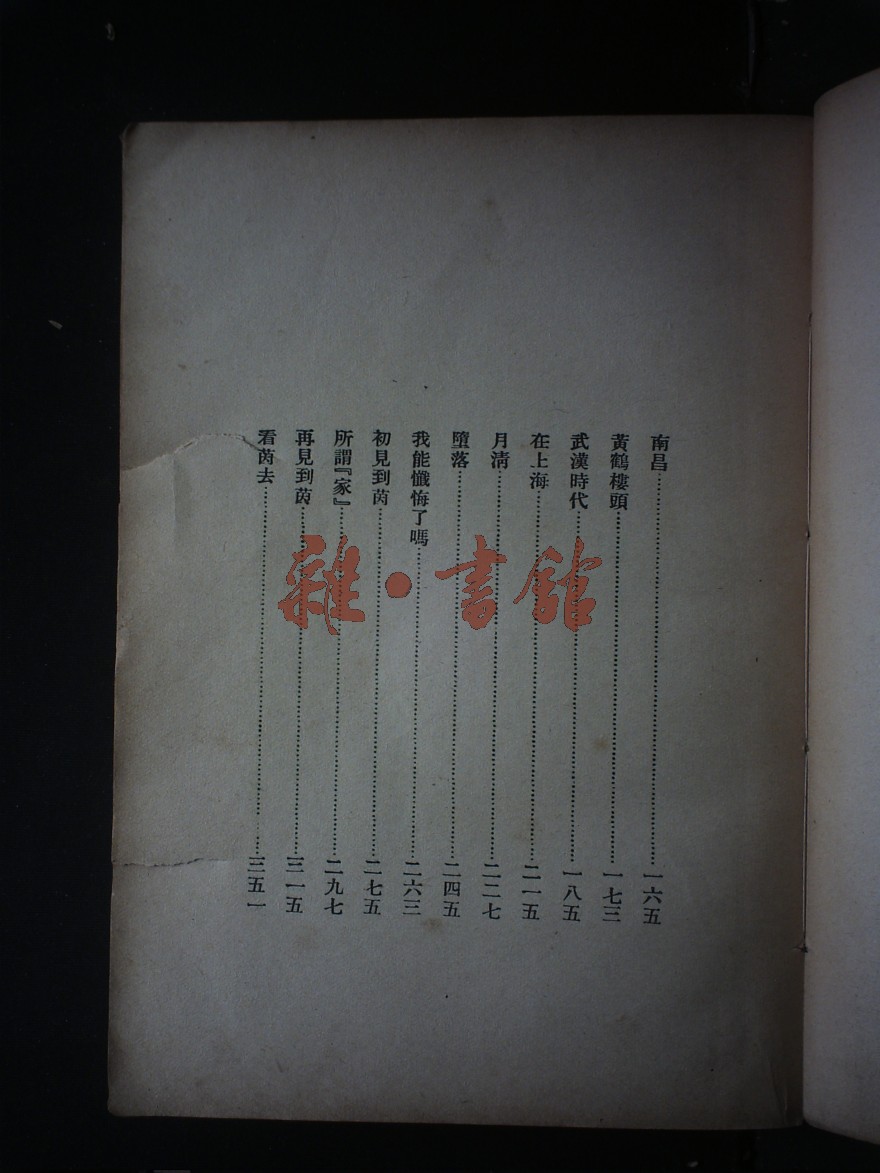 南昌……一六五
黃鶴樓頭……一七三
武漢時代……一八五
在上海……二一五
月清……二二七
墮落……二四五
我能懺悔了嗎……二六三
初見到茵……二七五
所謂『家』……二九七
再見到茵……三一五
看茵去……三五一
雜·書館